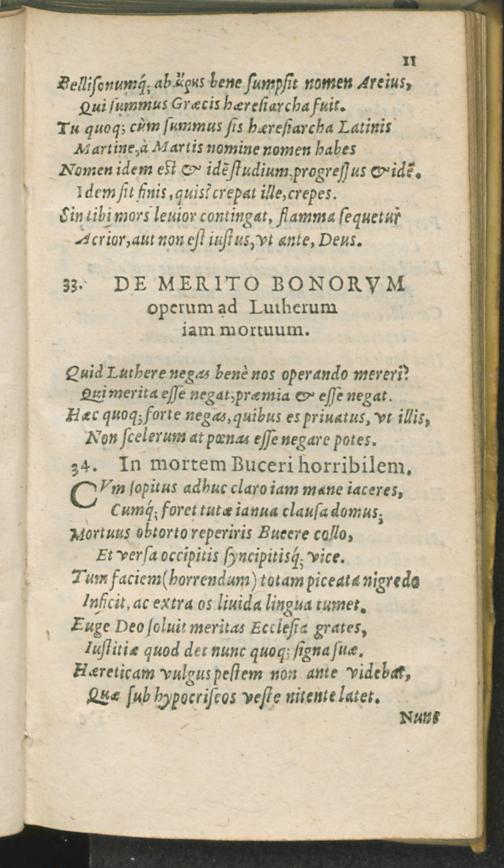 11
Belliſonumq́; ab ἄρης bene ſumpſit nomen Areius,
Qui ſummus Græcis hæreſiarcha fuit.
Tu quoq; cùm ſummus ſis hæreſiarcha Latinis
Martine, à Martis nomine nomen habes
Nomen idem eſt & idẽ ſtudium, progreſſus & idẽ.
Idem ſit finis, quis? crepat ille, crepes.
Sin tibi mors leuior contingat, flamma ſequetur
Acrior, aut non eſt iuſtus, vt ante, Deus.
33. DE MERITO BONORVM
operum ad Lutherum
iam mortuum.
Quid Luthere negas benè nos operando mereri?
Qui merita eſſe negat, præmia & eſſe negat.
Hæc quoq; forte negas, quibus es priuatus, vt illis,
Non ſcelerum at pœnas eſſe negare potes.
34. In mortem Buceri horribilem.
CVm ſopitus adhuc claro iam mane iaceres,
Cumq́; foret tutæ ianua clauſa domus;
Mortuus obtorto reperiris Bucere collo,
Et verſa occipitis ſyncipitisq́; vice.
Tum faciem (horrendum) totam piceata nigredo
Inficit, ac extra os liuida lingua tumet.
Euge Deo ſoluit meritas Eccleſia grates,
Iuſtitiæ quod det nunc quoq; ſigna ſuæ.
Hæreticam vulgus peſtem non ante videbat,
Quæ ſub hypocriſeos veſte nitente latet.
Nunc